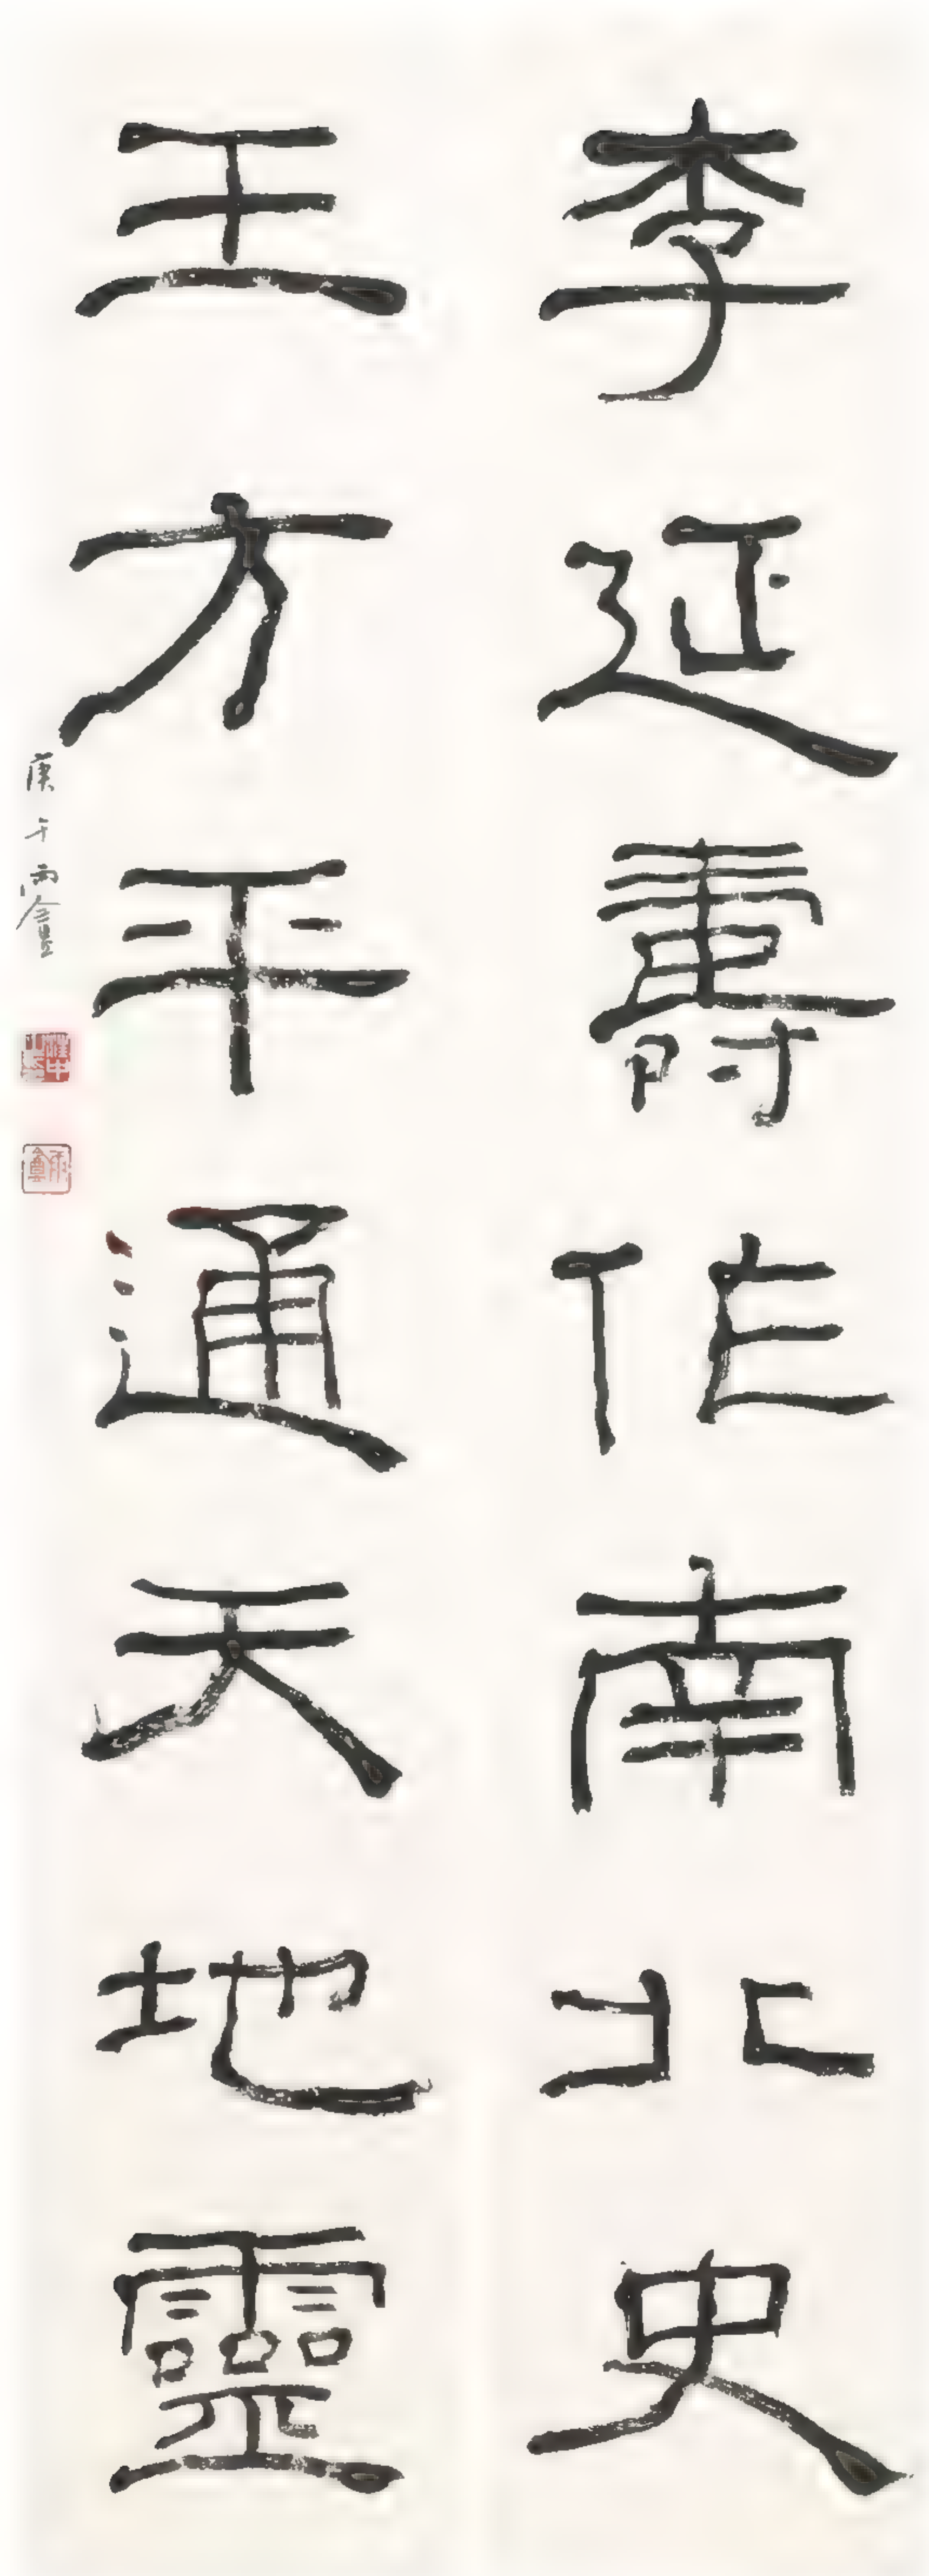 李延壽作南北史
王方平通天地靈
庚午雨盦